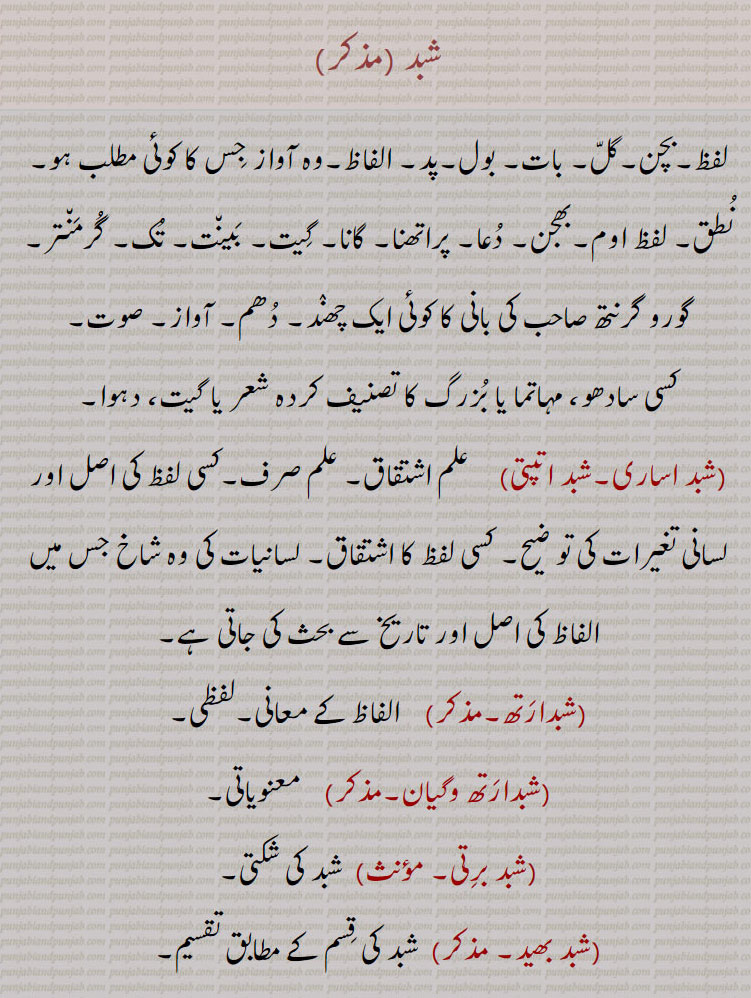 شبد (مذکر)
لفظ۔بچن۔گلّ۔ بات۔ بول۔پد۔ الفاظ۔وہ آواز جِس کا کوئی مطلب ہو۔
نُطق۔ لفظ اوم۔بھجن۔ دُعا۔ پراتھنا۔ گانا۔ گِیت۔ بَینّت۔ تُک۔ گُرمَنّتر۔
گورو گرنتھ صاحب کی بانی کا کوئی ایک چھنْد۔ دُھم۔ آواز۔ صوت۔
کسی سادھو، مہاتما یا بُزرگ کا تصنیف کردہ شعر یا گیت، دہوا۔
(شبد اساری۔شبد اتپتی) علم اشتقاق۔ علم صرف۔کسی لفظ کی اصل اور
لسانی تغیرات کی توضیح۔ کسی لفظ کا اشتقاق۔ لسانیات کی وہ شاخ جس میں
الفاظ کی اصل اور تاریخ سے بحث کی جاتی ہے۔
(شبدارَتھ۔مذکر) الفاظ کے معانی۔لفظی۔
(شبدارَتھ وگیان۔مذکر) معنویاتی۔
(شبد برِتی۔ مؤنث) شبد کی شکتی۔
(شبد بھید۔ مذکر) شبد کی قِسم کے مطابق تقسیم۔